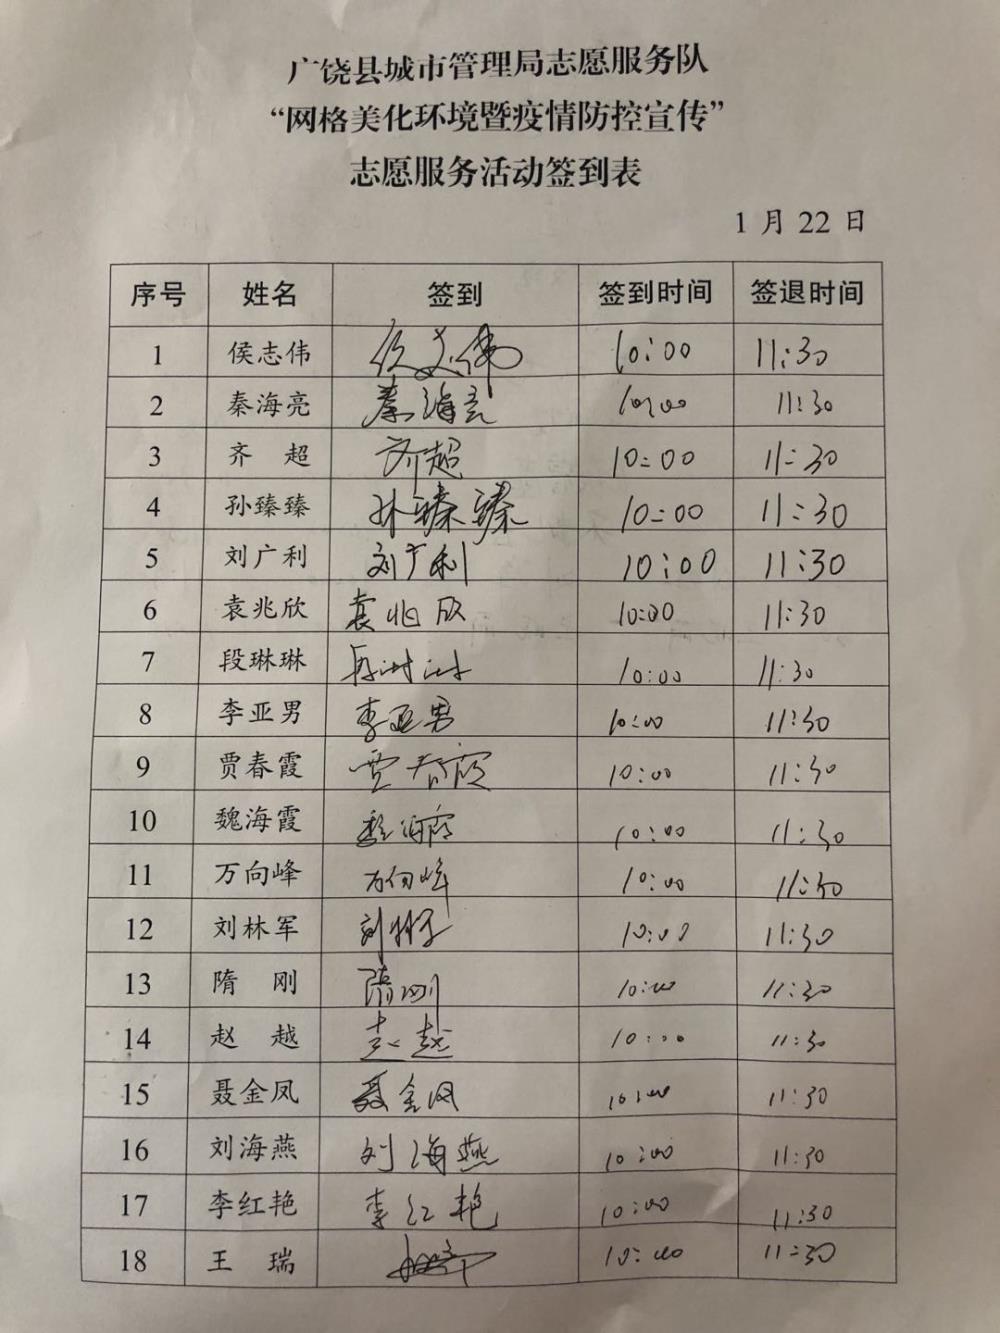 广饶县城市管理局志愿服务队
“网格美化环境暨疫情防控宣传”
志愿服务活动签到表
1 月 22 日
序号 姓名 签到 签到时间 签退时间
1 侯志伟 侯志伟 10:00 11:30
2 秦海亮 秦海亮 10:00 11:30
3 齐 超 齐超 10:00 11:30
4 孙臻臻 孙臻臻 10:00 11:30
5 刘广利 刘广利 10:00 11:30
6 袁兆欣 袁兆欣 10:00 11:30
7 段琳琳 段琳琳 10:00 11:30
8 李亚男 李亚男 10:00 11:30
9 贾春霞 贾春霞 10:00 11:30
10 魏海霞 魏海霞 10:00 11:30
11 万向峰 万向峰 10:00 11:30
12 刘林军 刘林军 10:00 11:30
13 隋 刚 隋刚 10:00 11:30
14 赵 越 赵越 10:00 11:30
15 聂金凤 聂金凤 10:00 11:30
16 刘海燕 刘海燕 10:00 11:30
17 李红艳 李红艳 10:00 11:30
18 王 瑞 10:00 11:30